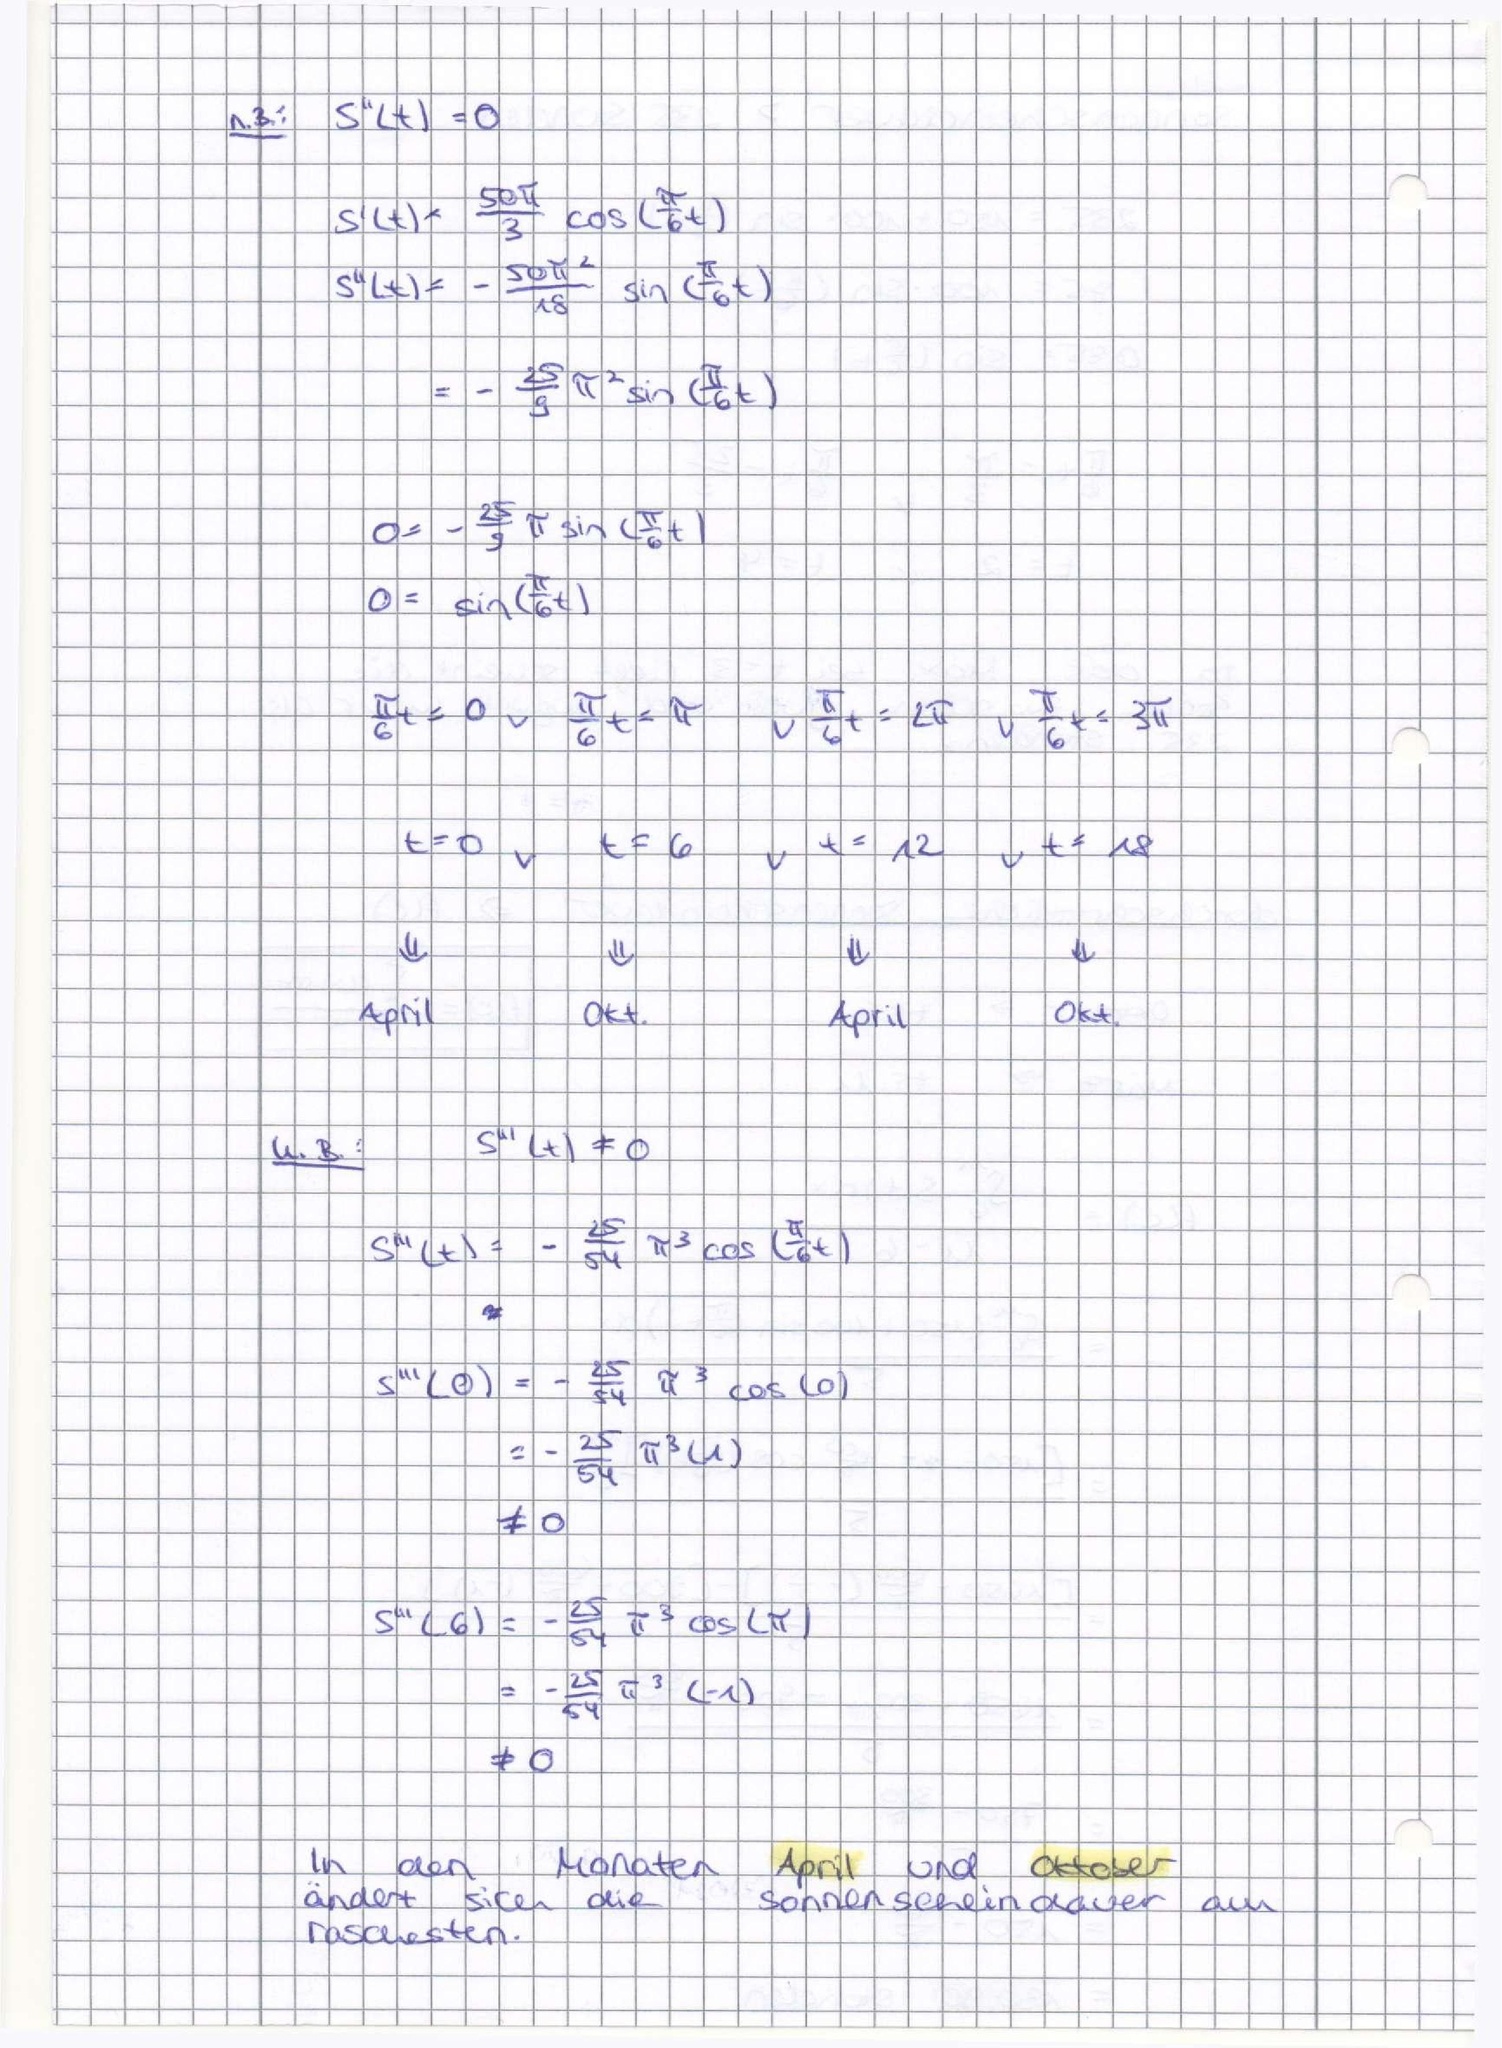 n.B.: S''(t) = 0
S'(t) = 50π/3 cos(π/6 t)
S''(t) = - 50π²/18 sin(π/6 t)
= - 25/9 π² sin(π/6 t)
0 = - 25/9 π sin(π/6 t)
0 = sin(π/6 t)
π/6 t = 0 ∨ π/6 t = π ∨ π/6 t = 2π ∨ π/6 t = 3π
t = 0 ∨ t = 6 ∨ t = 12 ∨ t = 18
⇓ ⇓ ⇓ ⇓
April Okt. April Okt.
h.B.: S'''(t) ≠ 0
S'''(t) = - 25/54 π³ cos(π/6 t)
S'''(0) = - 25/54 π³ cos(0)
= - 25/54 π³ (1)
≠ 0
S'''(6) = - 25/54 π³ cos(π)
= - 25/54 π³ (-1)
≠ 0
In den Monaten April und Oktober
ändert sich die Sonnenscheindauer am
raschesten.